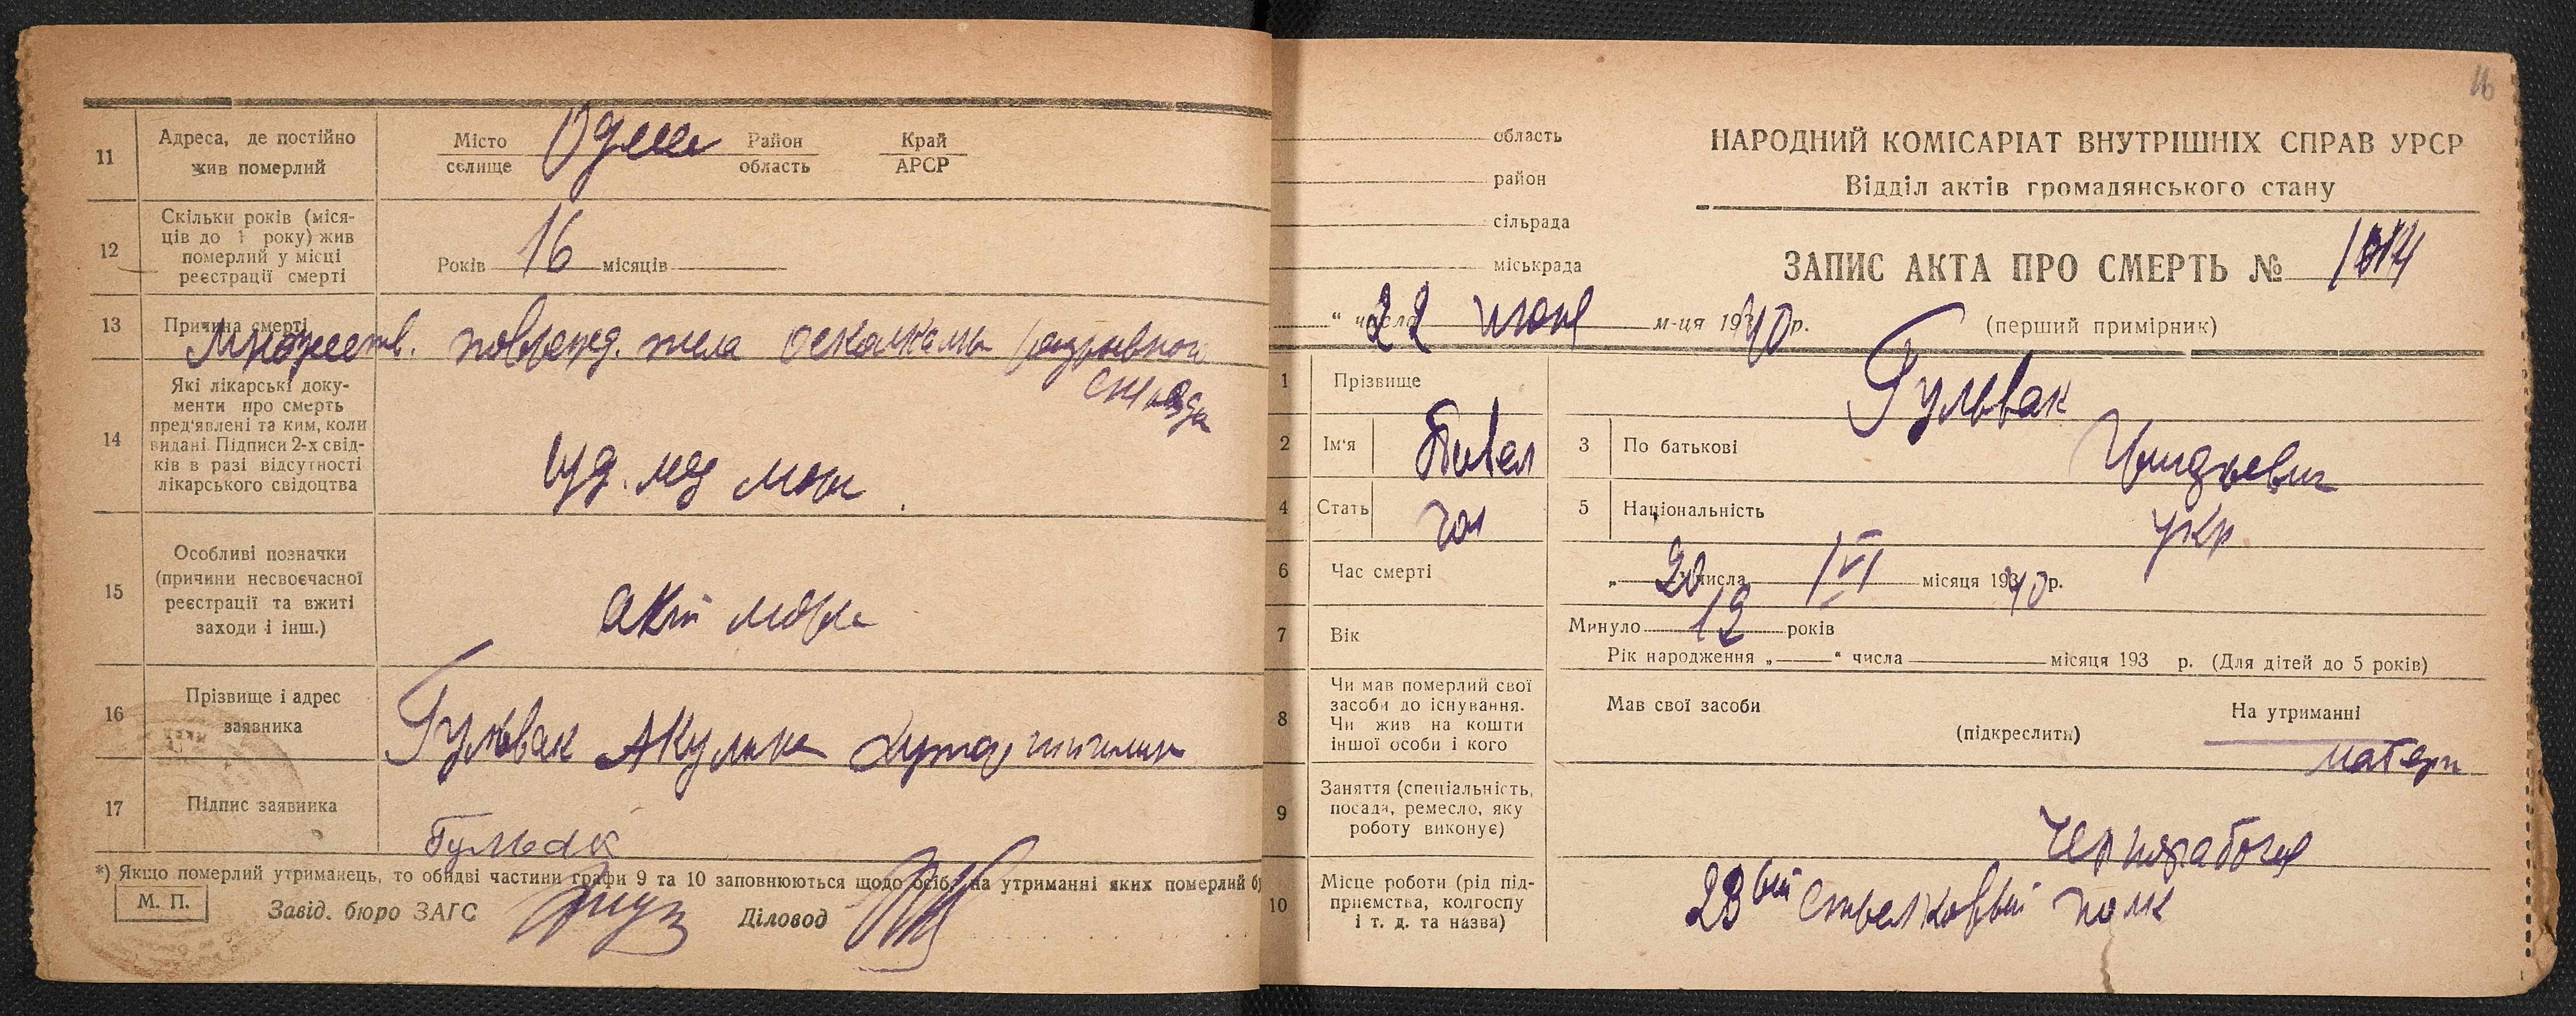 11
Адреса, де постійно
жив померлий
Місто
селище
Район
область
Край
АРСР
12
Скільки років (міся-
ців до 1 року) жив
померлий у місці
реєстрації смерті
Років 16 місяців
13
Причина смерті
Множеств. поврежд. тела осколками разрывного
снаряда
14
Які лікарські доку-
менти про смерть
пред'явлені та ким, коли
видані. Підписи 2-х свід-
ків в разі відсутності
лікарського свідоцтва
15
Особливі позначки
(причини несвоєчасної
реєстрації та вжиті
заходи і інш.)
16
Прізвище і адрес
заявника
Гульвак Акулина
17
Підпис заявника
Гульвак
*) Якщо померлий утриманець, то обидві частини графи 9 та 10 заповнюються щодо осіб, на утриманні яких померлий б
М. П.
Завід. бюро ЗАГС
Діловод
16
область
район
сільрада
міськрада
НАРОДНИЙ КОМІСАРІАТ ВНУТРІШНІХ СПРАВ УРСР
Відділ актів громадянського стану
ЗАПИС АКТА ПРО СМЕРТЬ № 1014
" числа 22 июня м-ця 1940 р.
(перший примірник)
1
Прізвище
Гульвак
2
Ім'я
3
По батькові
4
Стать
чол
5
Національність
укр
6
Час смерті
„ 20 " числа VI місяця 1940 р.
7
Вік
Минуло років
Рік народження „ " числа місяця 193 р. (Для дітей до 5 років)
8
Чи мав померлий свої
засоби до існування.
Чи жив на кошти
іншої особи і кого
Мав свої засоби
(підкреслити)
На утриманні
матери
9
Заняття (спеціальність,
посада, ремесло, яку
роботу виконує)
10
Місце роботи (рід під-
приємства, колгоспу
і т. д. та назва)
стрелковый полк